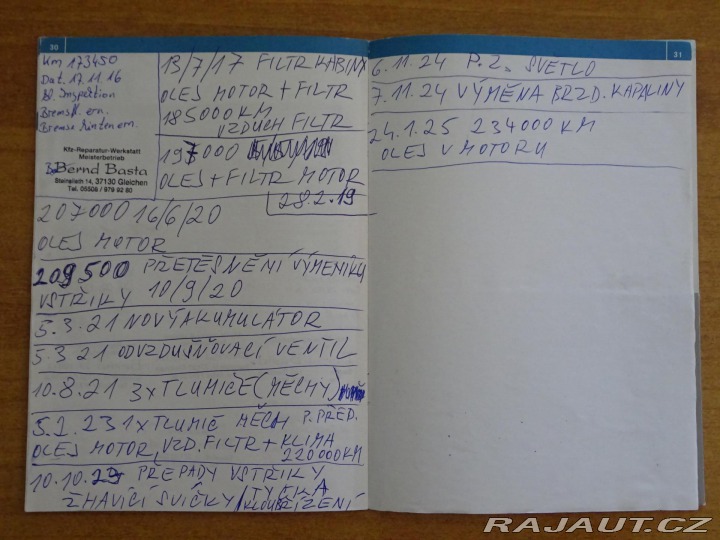 30
Km 173450
Dat. 17.11.16
Inspektion
Bremsfl. ern.
Bremse hinten ern.
Kfz-Reparatur-Werkstatt
Meisterbetrieb
Bernd Basta
Steinsfleth 14, 37130 Gleichen
Tel. 05508 / 979 92 80
13/7/17 FILTR KABINY
OLEJ MOTOR + FILTR
185000 KM
VZDUCH FILTR
197000
OLEJ + FILTR MOTOR
28.2.19
207000 16/6/20
OLEJ MOTOR
209500 PŘETĚSNĚNÍ VÝMENÍKU
VSTŘIKY 10/9/20
5.3.21 NOVÝ AKUMULÁTOR
5.3 21 ODVZDUŠŇOVACÍ VENTIL
10.8.21 3x TLUMIČE (MĚCHY)
5.2.23 1x TLUMIČ MĚCH P.PŘED.
OLEJ MOTOR, VZD. FILTR + KLIMA
220000KM
10.10.23 PŘEPADY VSTŘIKY
ŽHAVÍCÍ SVÍČKY TYČKA
KLOUB ŘÍZENÍ
31
6.11.24 P.Z. SVĚTLO
7.11.24 VÝMĚNA BRZD. KAPALINY
24.1.25 234000 KM
OLEJ V MOTORU
RAJAUT.CZ